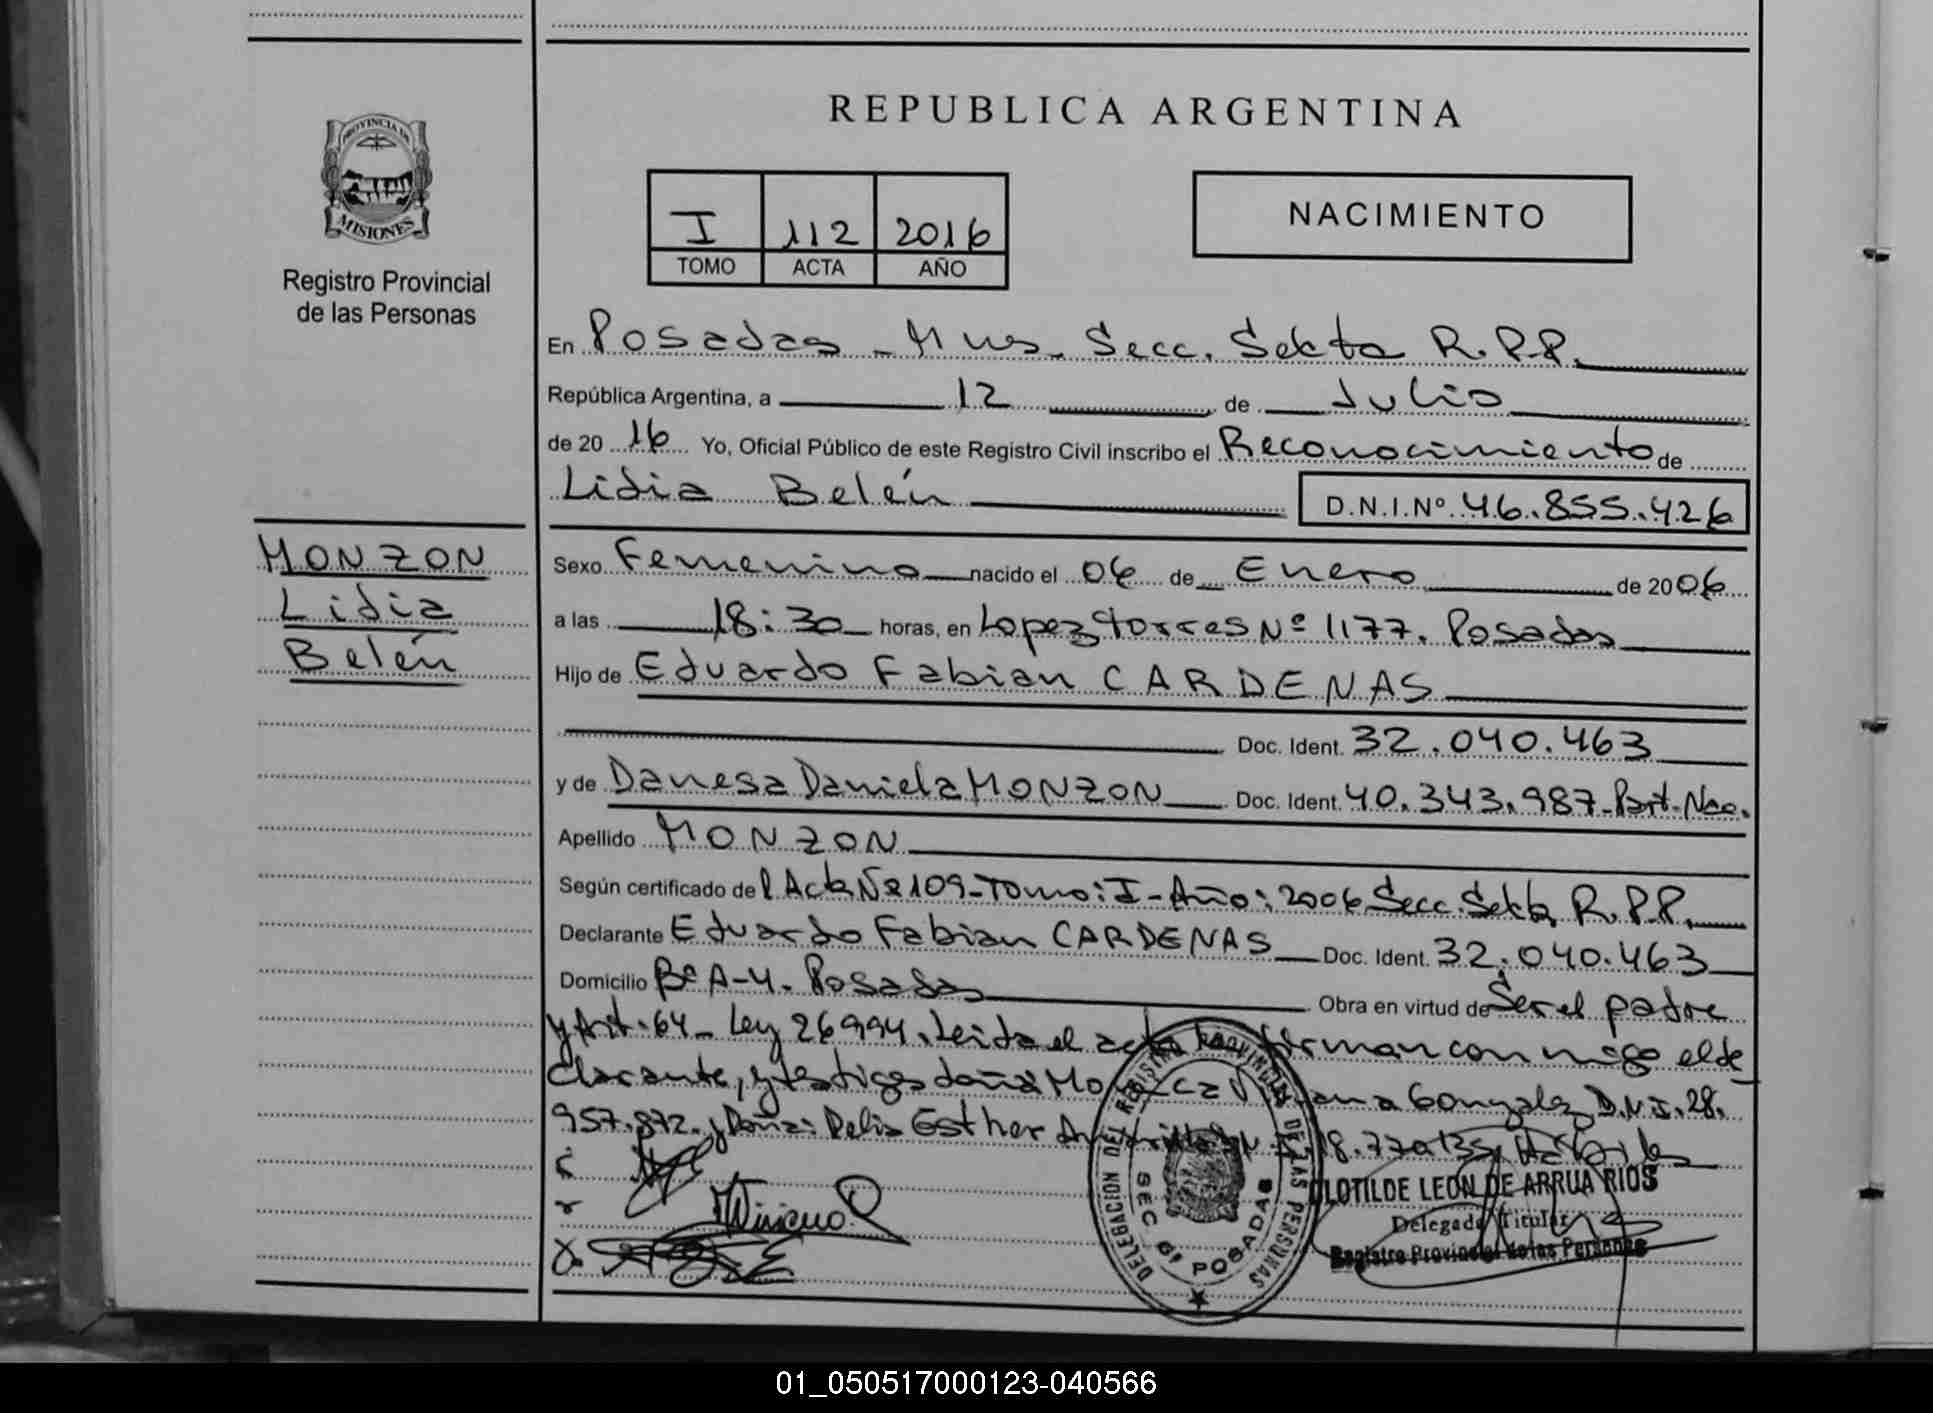 REPUBLICA ARGENTINA
PROVINCIA DE
MISIONES
Registro Provincial
de las Personas
I 112 2016
TOMO ACTA AÑO
NACIMIENTO
En Posadas - Mnes. Secc. Sekta R.P.P.
República Argentina, a 12 de Julio
de 20 16 Yo, Oficial Público de este Registro Civil inscribo el Reconocimiento de
Lidia Belén D.N.I.Nº 46.855.426
MONZON
Lidia
Belén
Sexo Femenino nacido el 06 de Enero de 2006
a las 18:30 horas, en Lopez Torres Nº 1177. Posadas
Hijo de Eduardo Fabian CARDENAS
Doc. Ident. 32.040.463
y de Danesa Daniela MONZON Doc. Ident. 40.343.987-Part-Nac.
Apellido MONZON
Según certificado del Acta Nº 109-Tomo: I-Año: 2006 Secc. Sekta R.P.P.
Declarante Eduardo Fabian CARDENAS Doc. Ident. 32.040.463
Domicilio Bº A-4. Posadas Obra en virtud de Ser el padre
y Art. 64- Ley 26994. Leida el acta la firman conmigo el de
clarante, y testigos doña Gonzalez D.N.I. 28.
957.872. y Doña: Delia Esther 18.770135,
DELEGACION DEL REGISTRO PROVINCIAL DE LAS PERSONAS
SEC 6ª POSADAS
CLOTILDE LEON DE ARRUA RIOS
Delegada Titular
Registro Provincial de las Personas
01_050517000123-040566